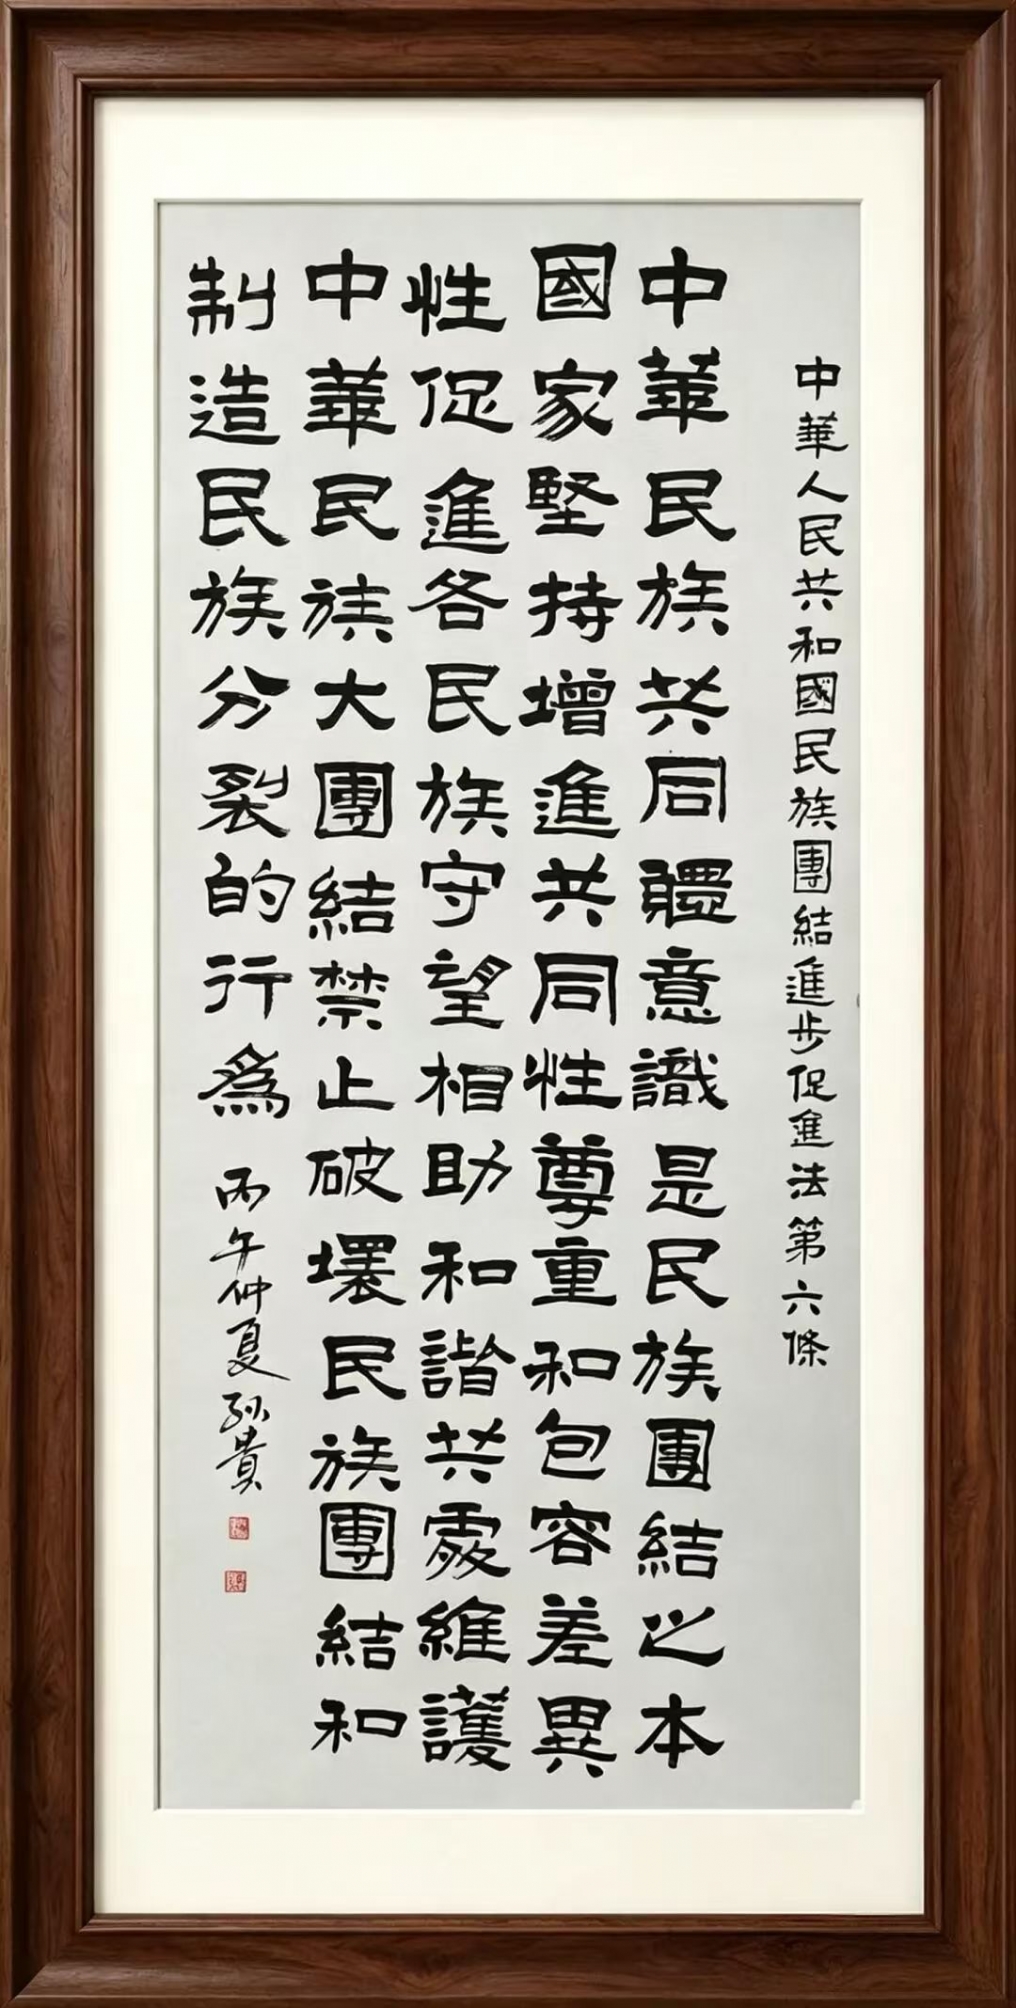 中華人民共和國民族團結進步促進法第六條
中華民族共同體意識是民族團結之本
國家堅持增進共同性尊重和包容差異
性促進各民族守望相助和諧共處維護
中華民族大團結禁止破壞民族團結和
制造民族分裂的行為
丙午仲夏孫貴